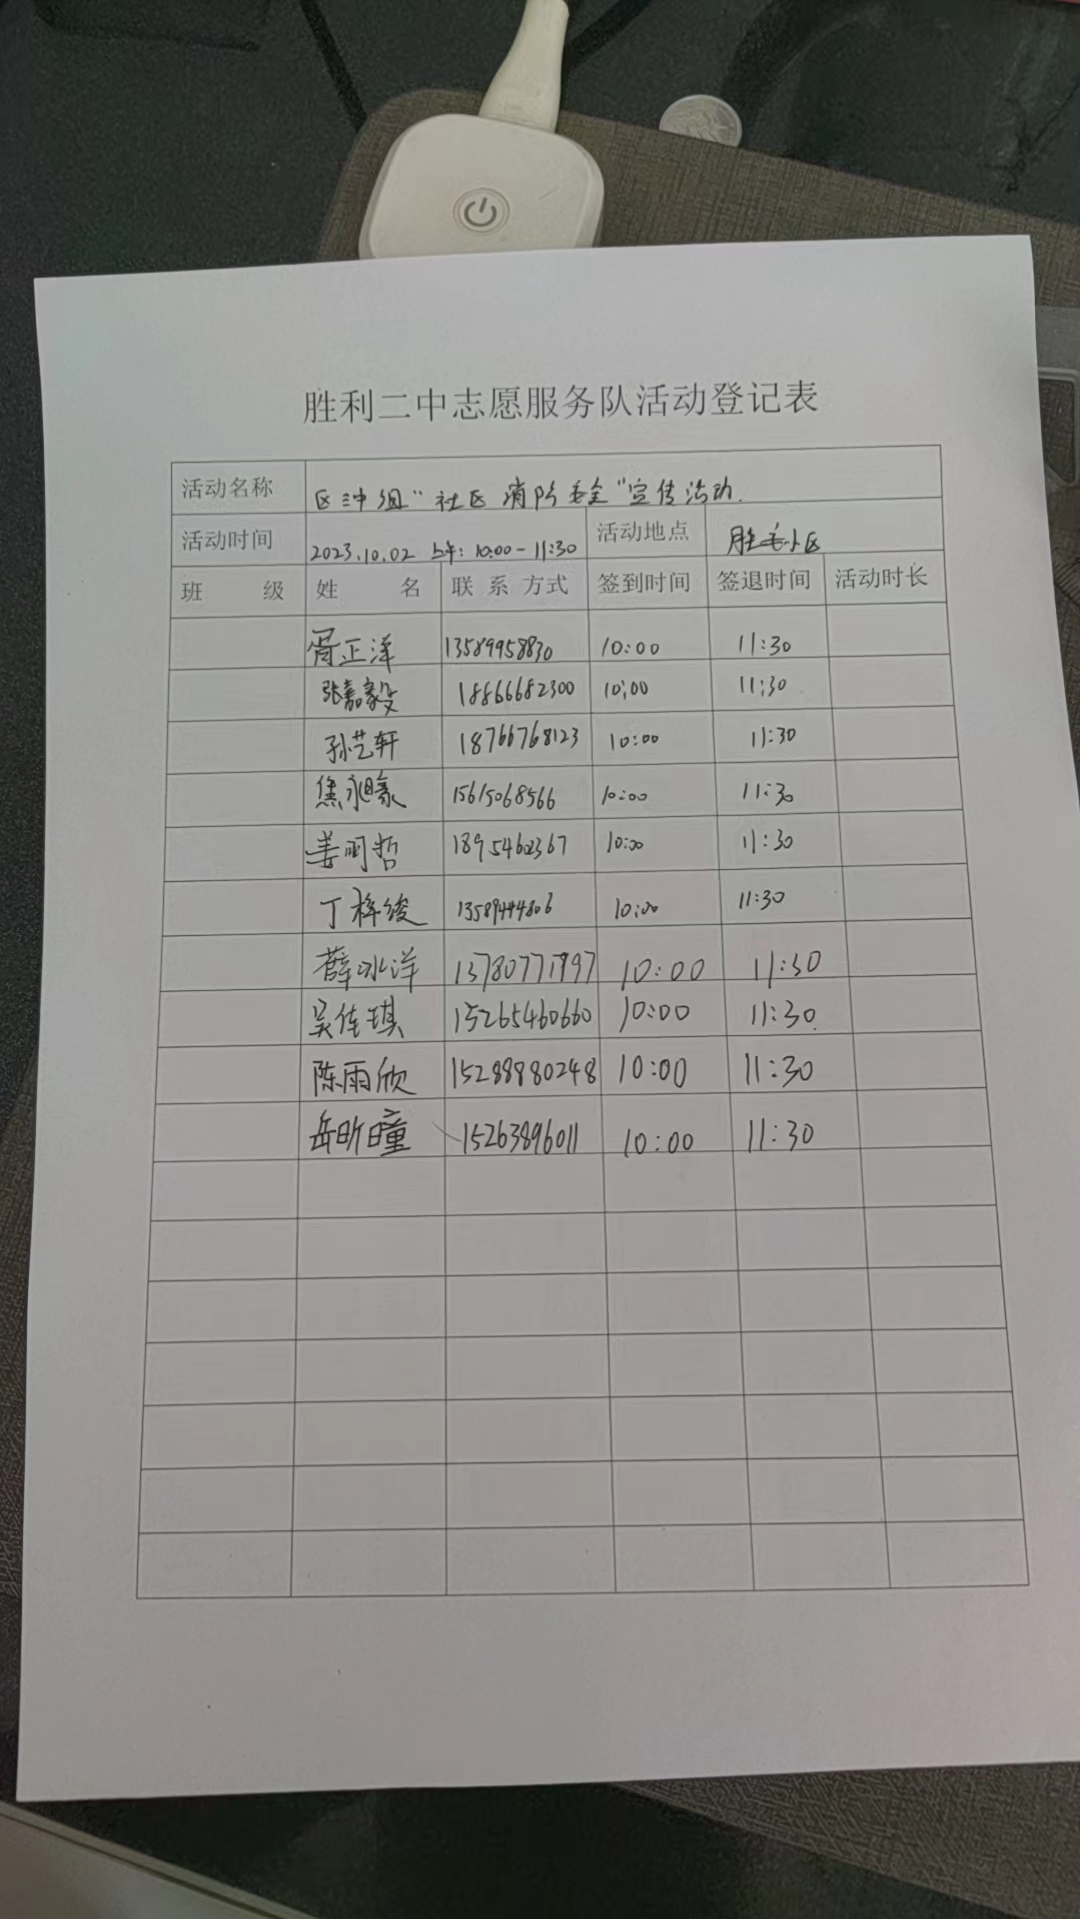 胜利二中志愿服务队活动登记表
活动名称 区三中组"社区消防安全"宣传活动.
活动时间 2023.10.02 上午: 10:00-11:30 活动地点 胜毛小区
班 级 姓 名 联系方式 签到时间 签退时间 活动时长
正洋 13589958830 10:00 11:30
张嘉毅 18866682300 10:00 11:30
孙艺轩 18766768123 10:00 11:30
焦 15615068566 10:00 11:30
姜明哲 18954602367 10:00 11:30
丁梓俊 13589444806 10:00 11:30
薛冰洋 13780771997 10:00 11:30
吴佳琪 15265460660 10:00 11:30
陈雨欣 15288880248 10:00 11:30
岳昕曈 15263896011 10:00 11:30